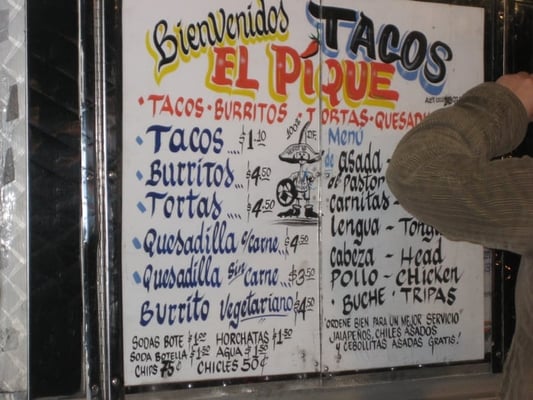 BienVenidos
TACOS
EL PIQUE
· TACOS · BURRITOS · TORTAS · QUESAD
· TACOS... $1.10
· BURRITOS... $4.50
· TORTAS... $4.50
· Quesadilla c/carne... $4.50
· Quesadilla Sin carne... $3.50
BURRITO Vegetariano $4.50
100% DE
Menú
de asada
al Pastor
Carnitas -
lengua - Tong
Cabeza - Head
POLLO - CHICKEN
· BUCHE · TRIPAS
"ORDENE BIEN PARA UN MEJOR SERVICIO"
JALAPEÑOS, CHILES ASADOS
Y CEBOLLITAS ASADAS GRATIS!
SODAS BOTE $1.00 HORCHATAS $1.50
SODA BOTELLA $1.50 AGUA $1.50
CHIPS 75¢ CHICLES 50¢